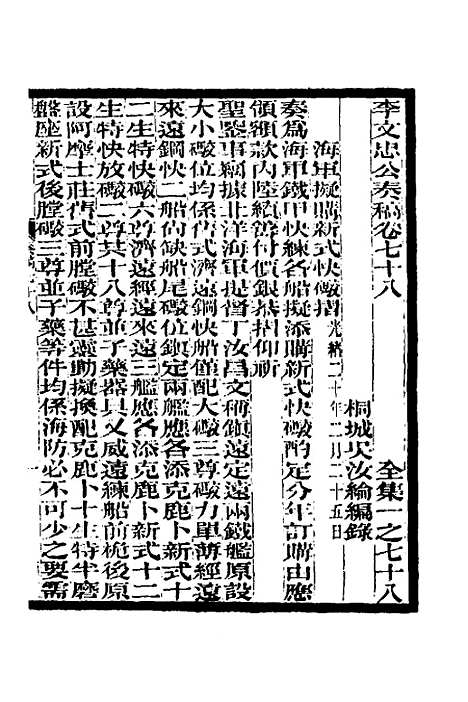 李文忠公奏稿卷七十八 全集一之七十八
桐城吳汝綸編錄
海軍擬購新式快礮摺 光緒二十年二月二十五日
奏爲海軍鐵甲快練各船擬添購新式快礮酌定分年訂購由應
領額款內陸續籌付價銀恭摺仰祈
聖鑒事竊據北洋海軍提督丁汝昌文稱鎮遠定遠兩鐵艦原設
大小礮位均係舊式濟遠鋼快船僅配大礮三尊礮力單薄經遠
來遠鋼快二船尚缺船尾礮位鎮定兩艦應各添克鹿卜新式十
二生特快放礮六尊濟遠經遠來遠三艦應各添克鹿卜新式十二
生特快放礮二尊共十八尊並子藥器具又威遠練船前桅後原
設阿摩士莊舊式前膛礮不甚靈動擬換配克鹿卜十生特半磨
盤座新式後膛礮三尊並子藥等件均係海防必不可少之要需